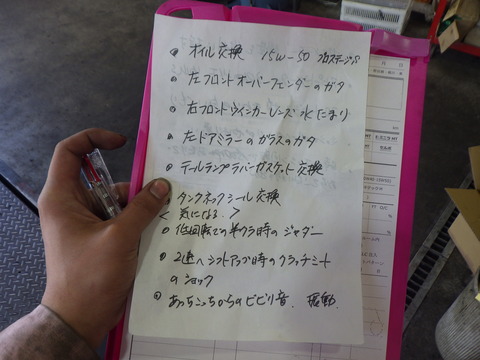 オイル交換 15W-50 プロステージS
左フロントオーバーフェンダーのガタ
右フロントウインカーレンズ水たまり
左ドアミラーのガラスのガタ
テールランプラバーガスケット交換
タンクネックシール交換
<気になる>
低回転での半クラ時のジャダー
2速へシフトアップ時のクラッチミート
のショック
あっちこっちからのビビリ音、振動